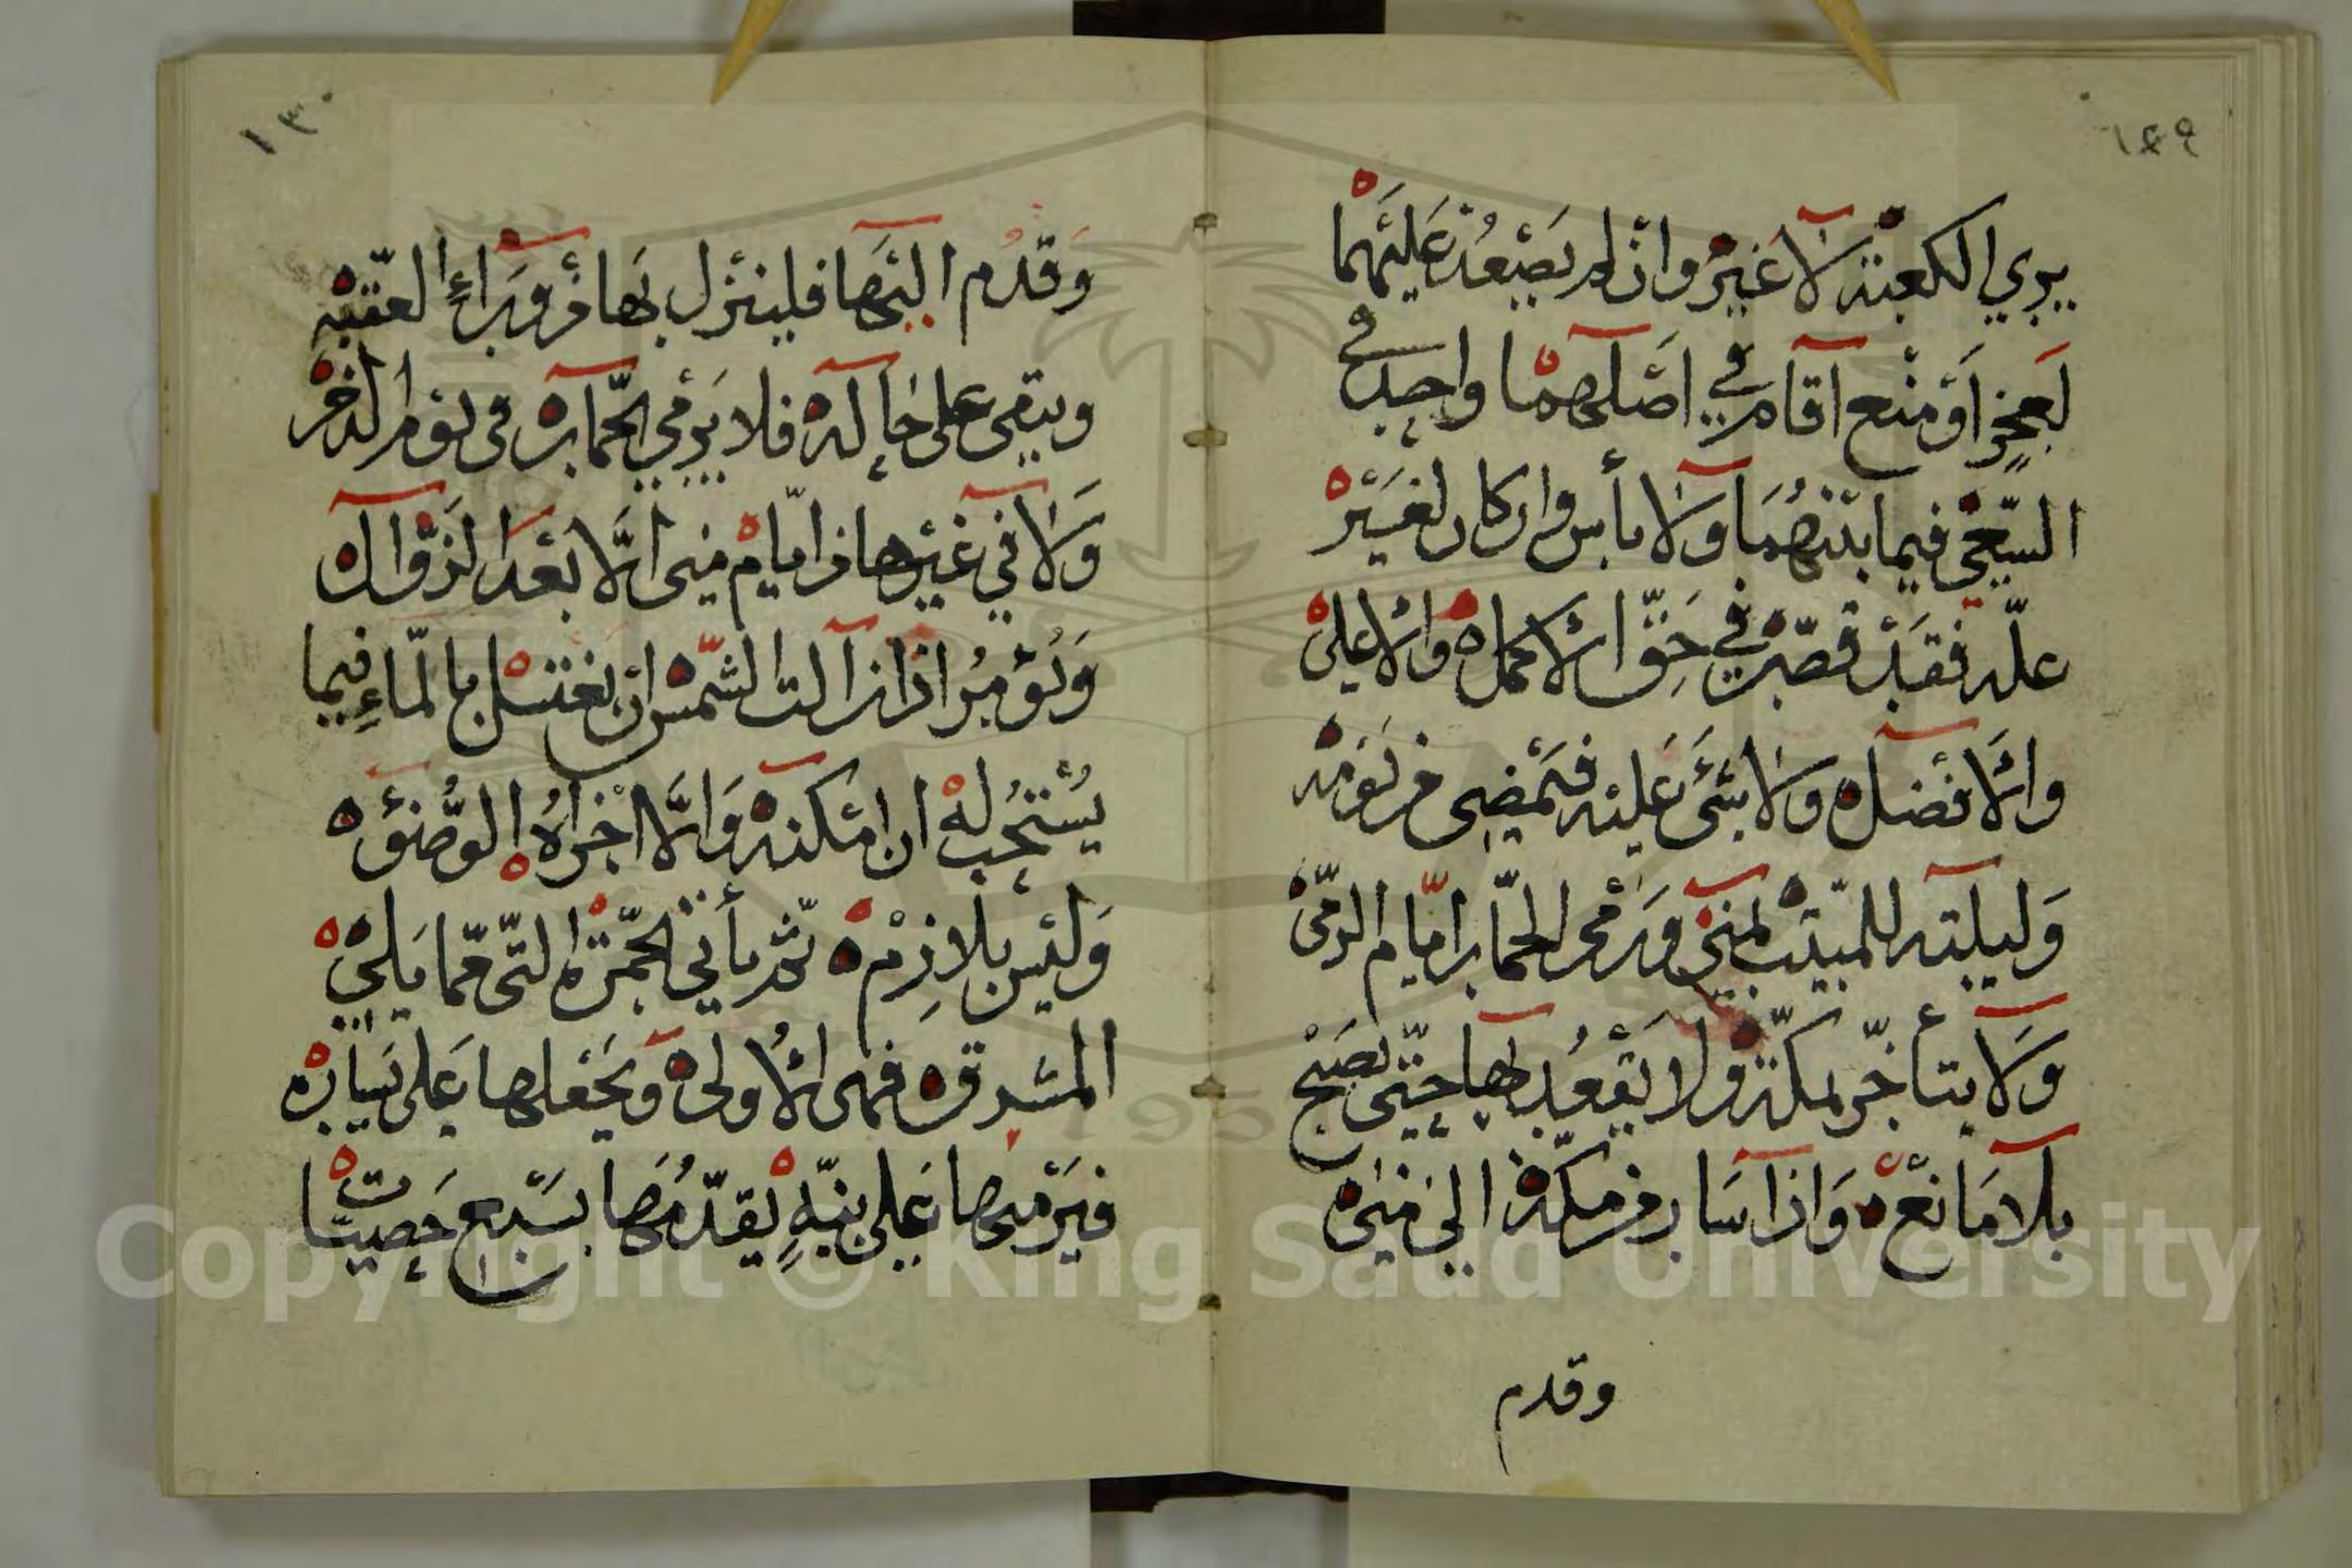 ١٢٩
يرى الكعبة لا غير وان لم يصعد عليهما
لعجز او منع اقام في اصلهما واحد في
السعي فيما بينهما ولا بأس وان كان لغير
علة فقد قصر في حق الاكمل والاعلى
والافضل ولا شئ عليه فيمضى من يومه
وليلته للمبيت بمنى ورمى الجمار ايام الرمى
ولا يتأخر بمكة ولا يقعد بها حتى يصبح
بلا مانع واذا سار من مكة الى منى
وقدم
١٣٠
وقدم اليها فلينزل بها من وراء العقبة
ويبقى على حاله فلا يرمي الجمار في يوم النحر
ولا في غيرها من ايام منى الا بعد الزوال
ويؤمر اذا زالت الشمس ان يغتسل بالماء فيما
يستحب له ان امكنه والا اجزاه الوضوء
وليس بلازم ثم يأتي الجمرة التى مما يلي
المشرق فهى الاولى ويجعلها على يساره
فيرميها على نية يقدمها بسبع حصيات
Copyright © King Saud University
1957